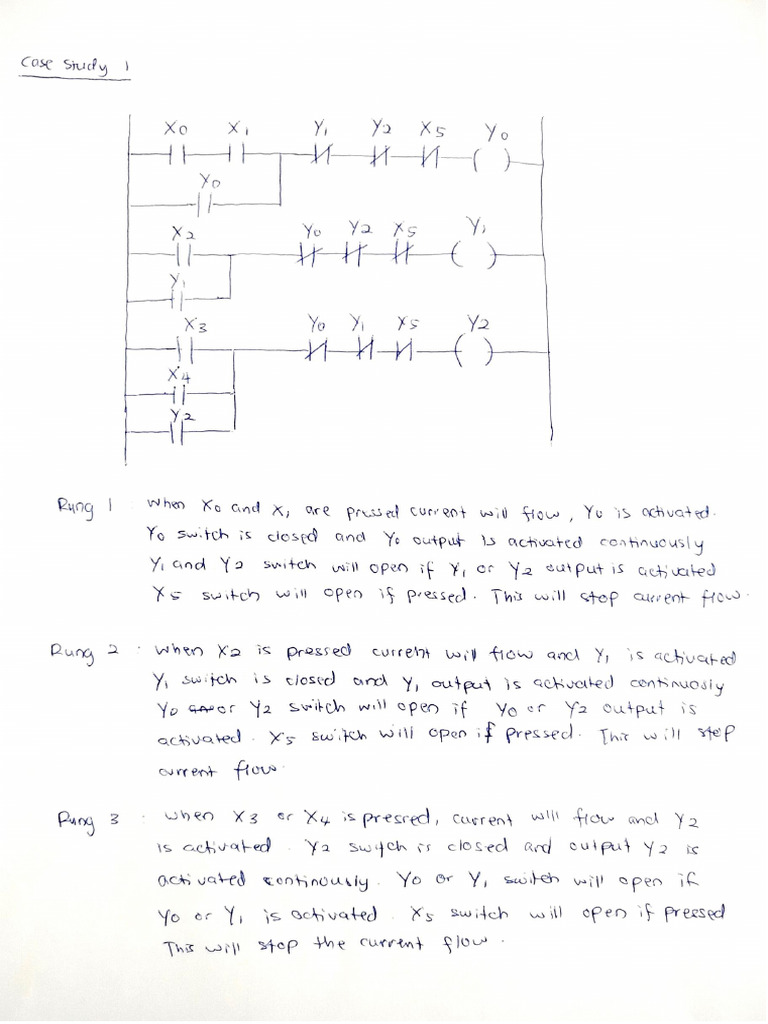 Case Study 1
X0 X1 Y1 Y2 X5 Y0
Y0
X2 Y0 Y2 X5 Y1
Y1
X3 Y0 Y1 X5 Y2
X4
Y2
Rung 1 : When X0 and X1 are pressed current will flow, Y0 is activated.
Y0 switch is closed and Y0 output is activated continuously
Y1 and Y2 switch will open if Y1 or Y2 output is activated
X5 switch will open if pressed. This will stop current flow.
Rung 2 : When X2 is pressed current will flow and Y1 is activated
Y1 switch is closed and Y1 output is activated continuosly
Y0 or Y2 switch will open if Y0 or Y2 output is
activated. X5 switch will open if pressed. This will stop
current flow.
Rung 3 : When X3 or X4 is pressed, current will flow and Y2
is activated. Y2 switch is closed and output Y2 is
activated continously. Y0 or Y1 switch will open if
Y0 or Y1 is activated. X5 switch will open if pressed
This will stop the current flow.